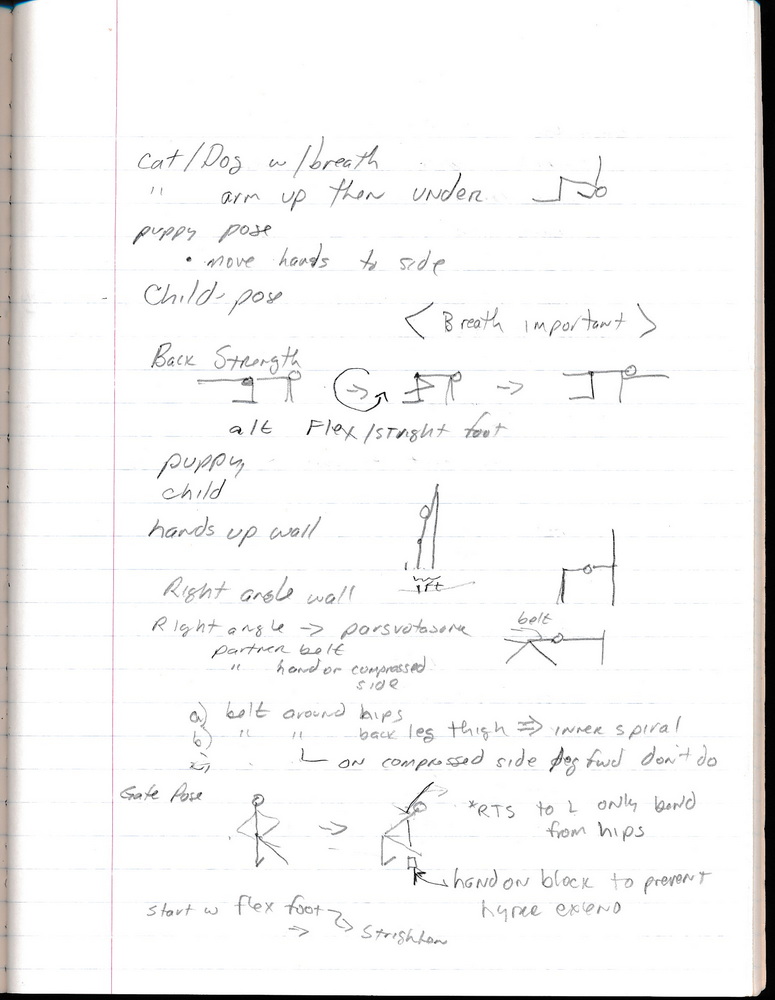 cat/Dog w/breath
" arm up then under
puppy pose
• move hands to side
Child-pose
< Breath important >
Back Strength
alt Flex/stright foot
puppy,
child
hands up wall
1ft
Right angle wall
Right angle -> parsvotasana
belt
partner belt
" hand on compressed
side
a) belt around hips
b) " " back leg thigh => inner spiral
on compressed side leg fwd don't do
Gate Pose
*RTS to L only bend
from hips
hand on block to prevent
extend
start w flex foot
-> strighten